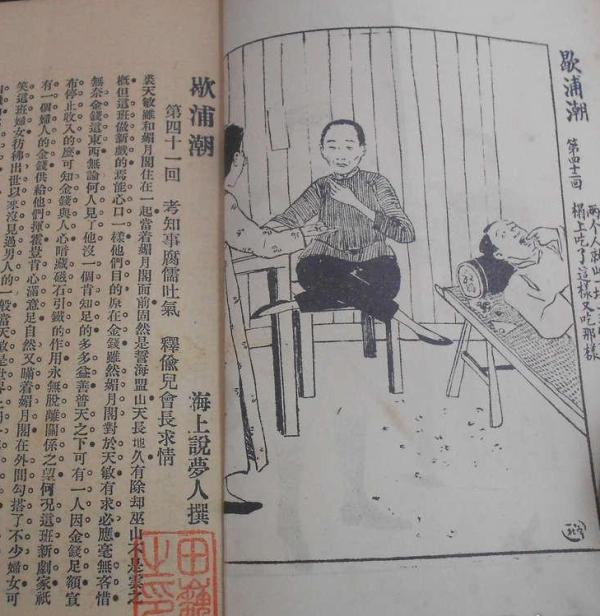 歇浦潮
第四十一回
榻上吃了這樣又吃那樣
歇浦潮
第四十一回 考知事腐儒吐氣 釋偸兒會長求情
海上說夢人撰
裘天敏雖和媚月閣住在一起當着媚月閣面前固然是誓海盟山天長地久有除却巫山不是雲之
概但這班做新戲的焉能心口一樣他們目的原在金錢雖然媚月閣對於天敏有求必應毫無吝惜
無奈金錢這東西無論何人見了他沒一個肯知足的多多益善普天之下可有一人因金錢足額宣
布停止收入的麽可知金錢與人心暗藏磁石引鐵的作用永無脫離關係之望何况這班新劇家祇
有一個婦人的金錢供給他們揮霍豈肯心滿意足自然又瞞着媚月閣在外間勾搭了不少婦女可
笑這班婦女彷彿出世以來沒見過男人的一般當天敏是世界